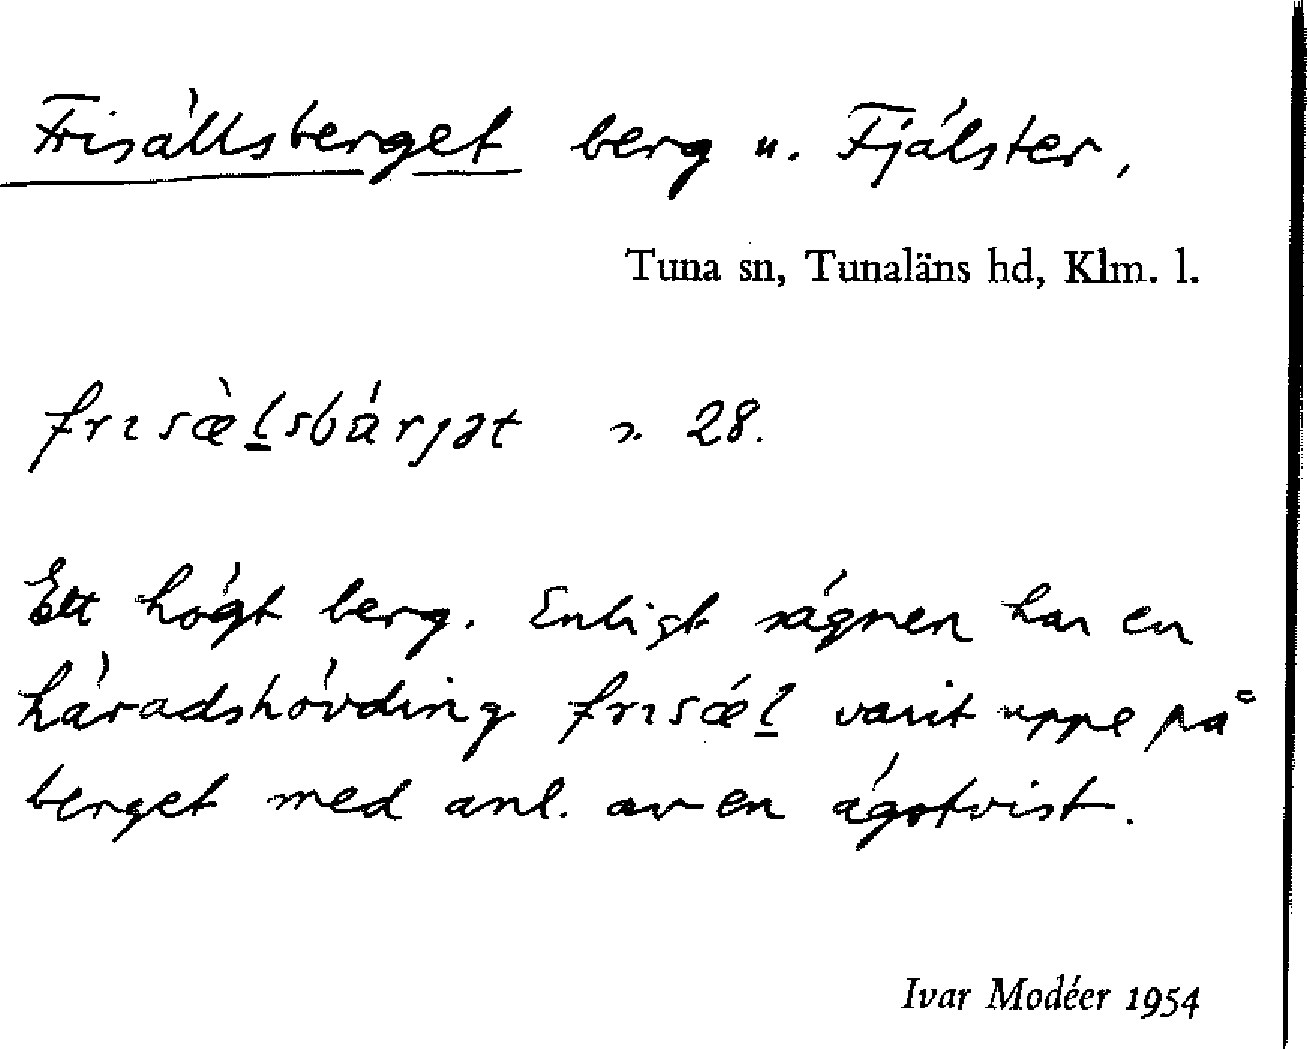 Frisällsberget berg u. Fjälster,
Tuna sn, Tunaläns hd, Klm. l.
frısæ̀lsbárȷət s. 28.
Ett högt berg. Enligt sägnen har en
häradshövding frısǽl varit uppe på
berget med anl. av en ägotvist.
Ivar Modéer 1954